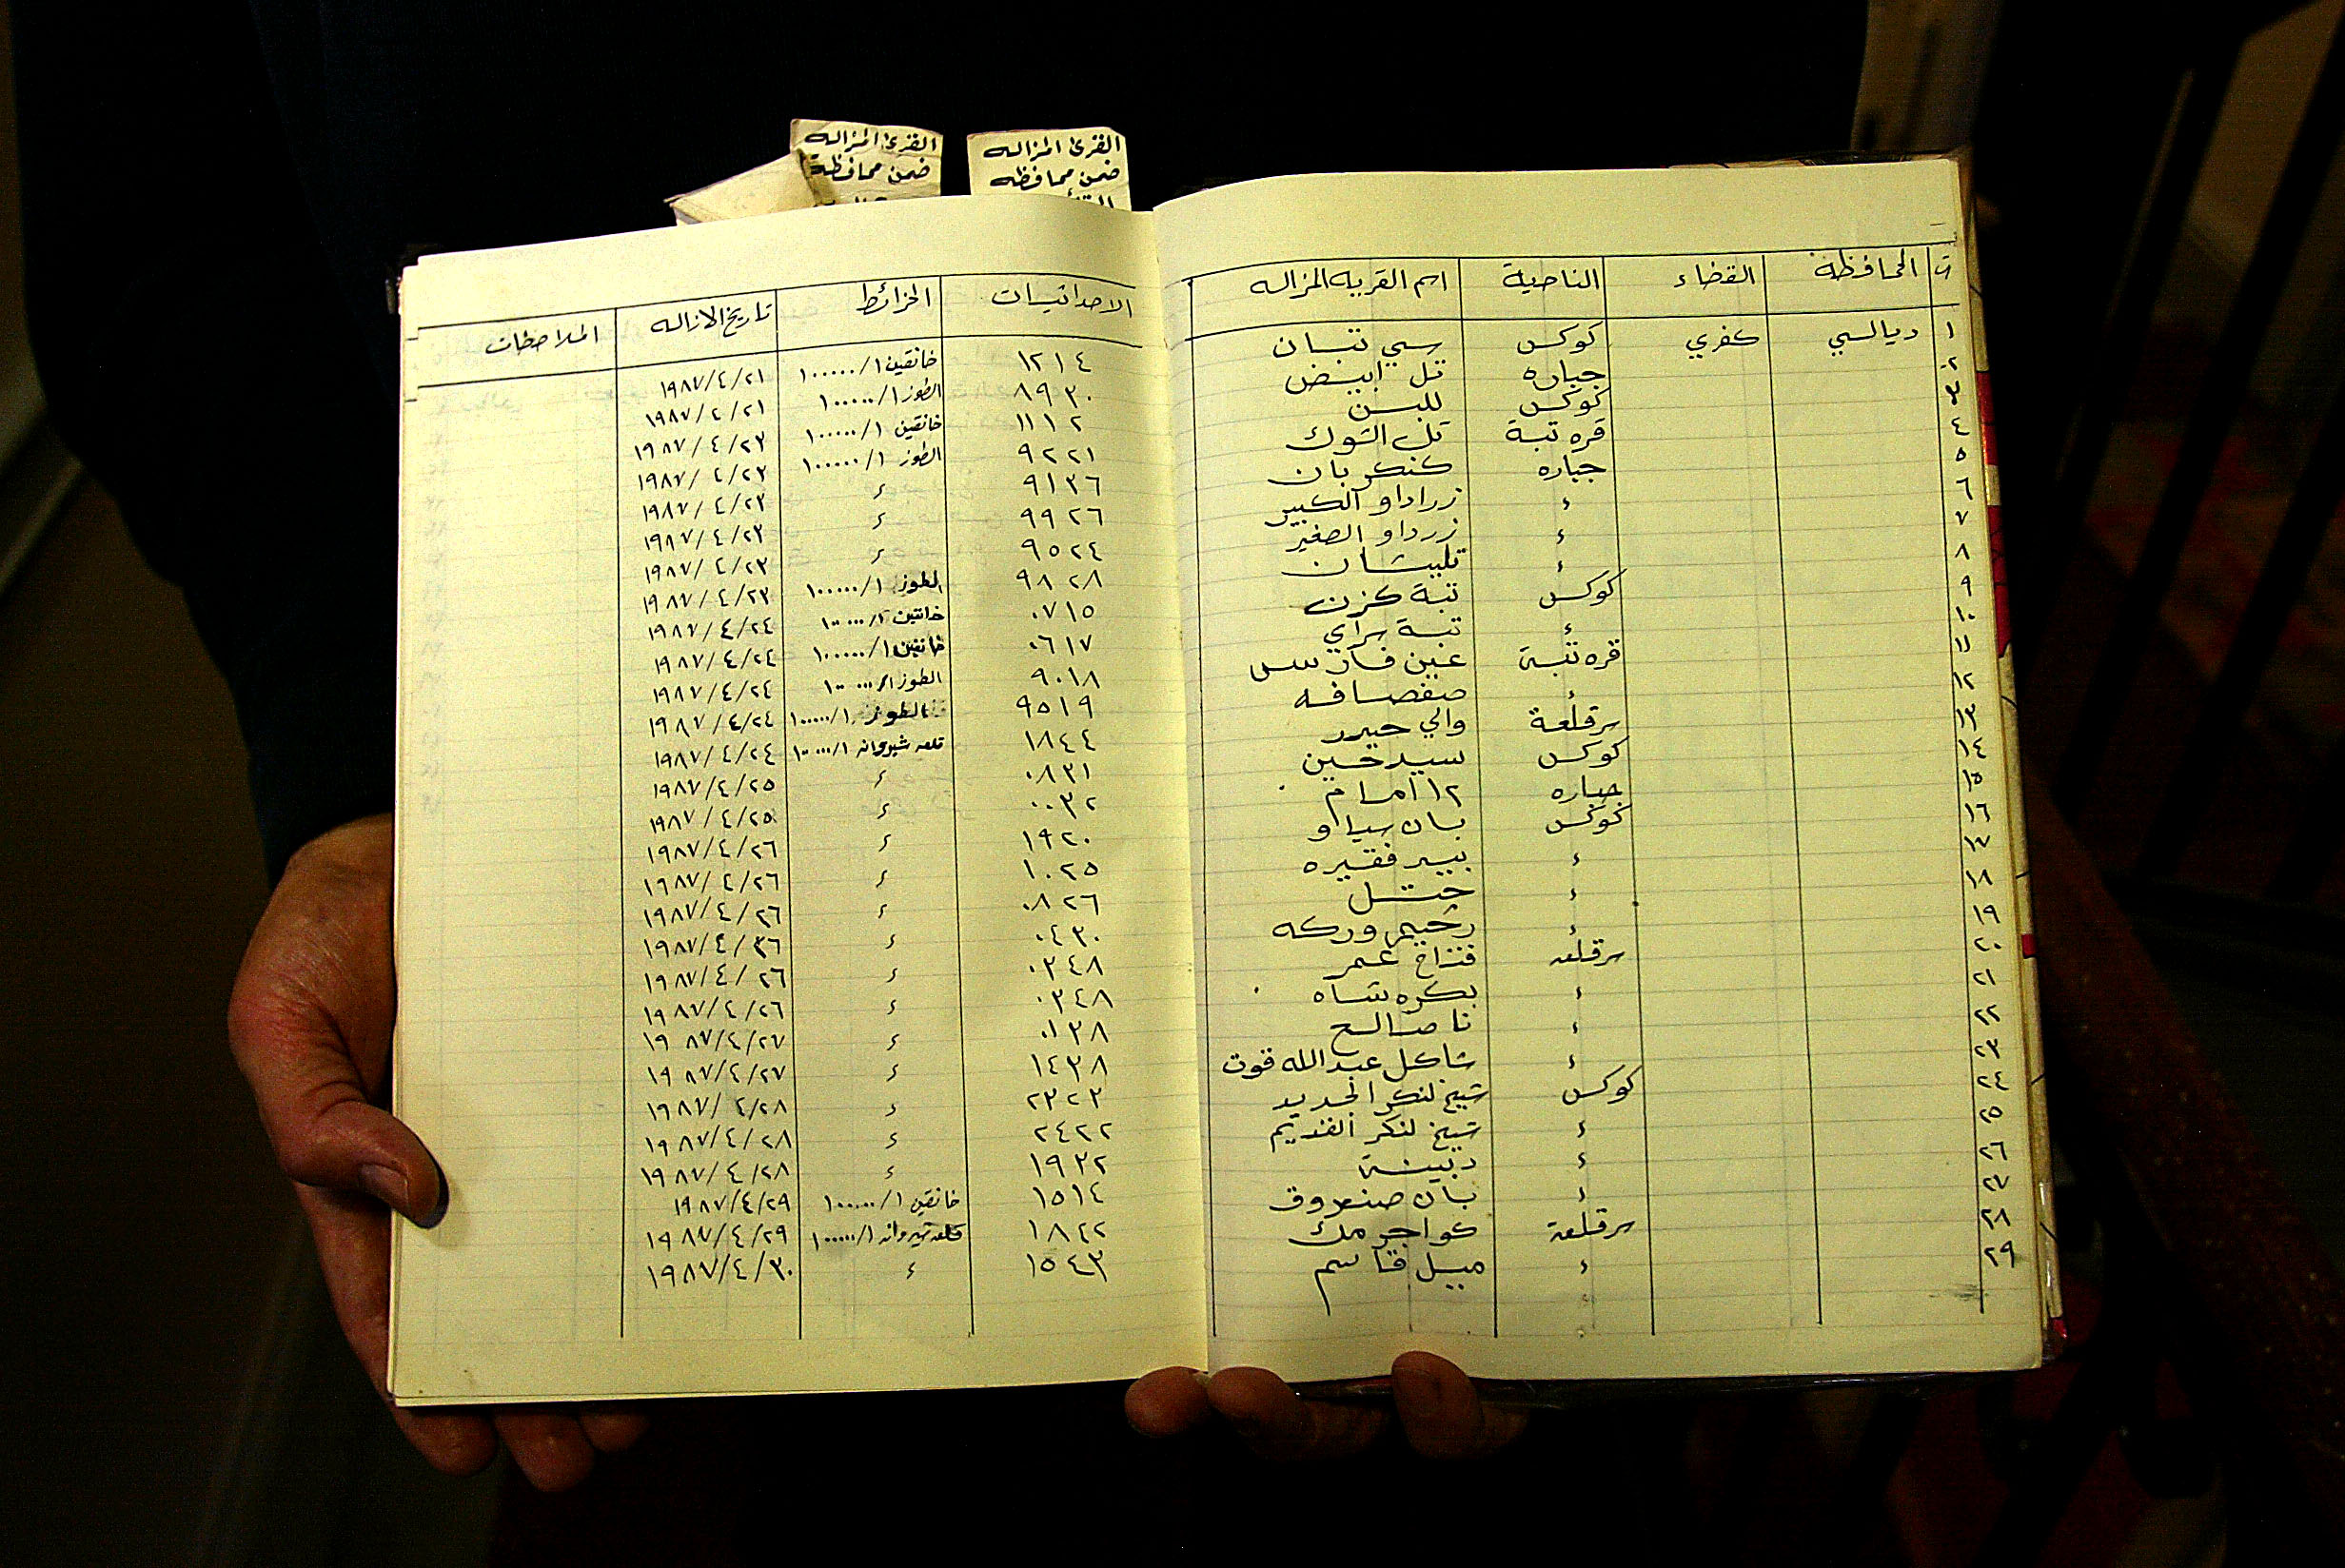 القرى المزاله
ضمن محافظه
القرى المزاله
ضمن محافظة
ت المحافظة القضاء الناحية اسم القريه المزاله الاحداثيات الخرائط تاريخ الازاله الملاحظات
١ ديالى كفري كوكس سي تبان ١٢١٤ خانقين ١/١٠٠٠٠٠ ١٩٨٧/٤/٢١
٢ جباره تل ابيض ٨٩٣٠ الطوز ١/١٠٠٠٠٠ ١٩٨٧/٤/٢١
٣ كوكس للبن ١١١٢ خانقين ١/١٠٠٠٠٠ ١٩٨٧/٤/٢٣
٤ قره تبة تل الشوك ٩٢٢١ الطوز ١/١٠٠٠٠٠ ١٩٨٧/٤/٢٣
٥ جباره كنكربان ٩١٣٦ ء ١٩٨٧/٤/٢٣
٦ ء زراداو الكبير ٩٩٢٦ ء ١٩٨٧/٤/٢٣
٧ ء زرداو الصغير ٩٥٢٤ ء ١٩٨٧/٤/٢٣
٨ ء تليشان ٩٨٢٨ الطوز ١/١٠٠٠٠٠ ١٩٨٧/٤/٢٣
٩ كوكس تبة كزن ٠٧١٥ خانقين ١/١٠٠٠٠٠ ١٩٨٧/٤/٢٤
١٠ ء تبة سراي ٠٦١٧ خانقين ١/١٠٠٠٠٠ ١٩٨٧/٤/٢٤
١١ قره تبة عين فارس ٩٠١٨ الطوز ١/١٠٠٠٠٠ ١٩٨٧/٤/٢٤
١٢ ء صفصافه ٩٥١٩ الطوز ١/١٠٠٠٠٠ ١٩٨٧/٤/٢٤
١٣ سرقلعة والي حيدر ١٨٤٤ قلعه شيروانه ١/١٠٠٠٠٠ ١٩٨٧/٤/٢٤
١٤ كوكس سيد حسين ٠٨٣١ ء ١٩٨٧/٤/٢٥
١٥ جباره ١٢ امام ٠٠٣٢ ء ١٩٨٧/٤/٢٥
١٦ كوكس بان سياو ١٩٢٠ ء ١٩٨٧/٤/٢٦
١٧ ء بير فقيره ١٠٢٥ ء ١٩٨٧/٤/٢٦
١٨ ء چتل ٠٨٢٦ ء ١٩٨٧/٤/٢٦
١٩ ء رحيم وركه ٠٤٣٠ ء ١٩٨٧/٤/٢٦
٢٠ سرقلعه فتاح عمر ٠٣٤٨ ء ١٩٨٧/٤/٢٦
٢١ ء بكره شاه ٠٣٤٨ ء ١٩٨٧/٤/٢٦
٢٢ ء نا صالح ٠١٣٨ ء ١٩٨٧/٤/٢٧
٢٣ ء شاكل عبدالله قوت ١٤٣٨ ء ١٩٨٧/٤/٢٧
٢٤ كوكس شيخ لنكر الجديد ٢٣٢٣ ء ١٩٨٧/٤/٢٨
٢٥ ء شيخ لنكر القديم ٢٤٢٢ ء ١٩٨٧/٤/٢٨
٢٦ ء دبينة ١٩٣٢ ء ١٩٨٧/٤/٢٨
٢٧ ء بان صندوق ١٥١٤ خانقين ١/١٠٠٠٠٠ ١٩٨٧/٤/٢٩
٢٨ سرقلعة كواجرمك ١٨٤٢ قلعه شيروانه ١/١٠٠٠٠٠ ١٩٨٧/٤/٢٩
٢٩ ء ميل قاسم ١٥٤٣ ء ١٩٨٧/٤/٣٠